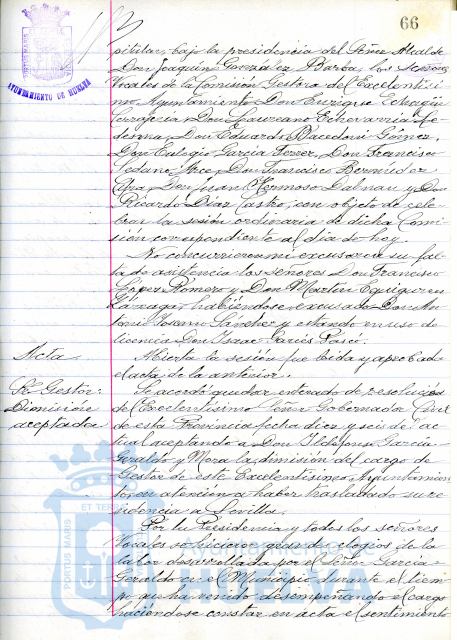 66
AYUNTAMIENTO DE HUELVA
pitular, bajo la presidencia del Señor Alcalde
Don Joaquín González Barba, los señores
Vocales de la Comisión Gestora del Excelentísi
mo Ayuntamiento Don Enrique
Don Laureano Echevarría
desma, Don Eduardo Macedoni Gómez,
Don Eulogio García Ferrer, Don Francisco
Seduno Arce, Don Francisco Bermúdez
Don Juan Hermoso Dalmau y Don
Ricardo Díaz Castro, con objeto de cele-
brar la sesión ordinaria de dicha Comi
sión correspondiente al día de hoy.
No concurrieron ni excusaron su fal
ta de asistencia los señores Don Francisco
López Romero y Don Martín Eguiguren
habiéndose excusado Don An
tonio Sánchez y estando en uso de
licencia Don Isaac
Acta.
Abierta la sesión fue leída y aprobada
el acta de la anterior.
Sr. Gestor:
Dimisión
aceptada
Se acordó quedar enterado de resolución
del Excelentísimo Señor Gobernador Civil
de esta Provincia fecha diez y seis del ac
tual aceptando a Don Ildefonso García
Geraldo y Mora la dimisión del cargo de
Gestor de este Excelentísimo Ayuntamien
to, en atención a haber trasladado su re
sidencia a Sevilla.
Por la Presidencia y todos los señores
Vocales se hicieron grandes elogios de la
labor desarrollada por el Señor García
Geraldo en el Municipio durante el tiem
po que ha venido desempeñando el cargo
haciéndose constar en acta el sentimiento
PORTUS MARIS
ET TERRAE
Ayuntamiento de
HUELVA